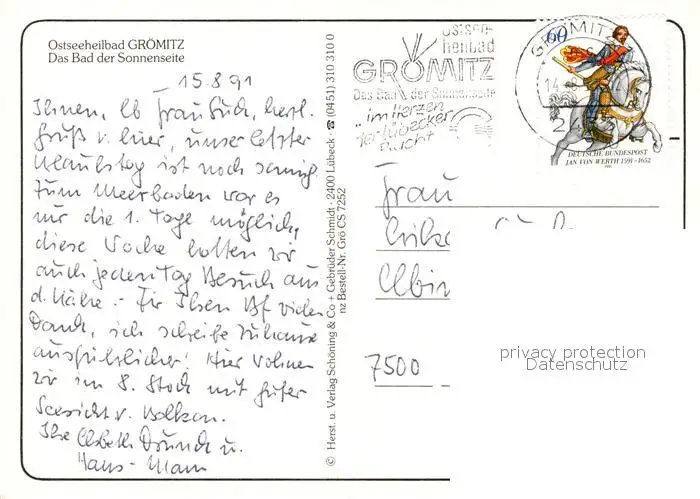 Ostseeheilbad GRÖMITZ
Das Bad der Sonnenseite
15.8.91
Ihnen, lb Frau Such, herzl.
Gruß v. hier, unser letzter
Urlaubstag ist noch sonnig
zum Meerbaden war es
nur die 1. Tage möglich,
diese Woche hatten wir
auch jeden Tag Besuch aus
d. Nähe. - Für Ihren Bf vielen
Dank, ich schreibe Zuhause
ausführlicher! Hier wohnen
wir im 8. Stock mit guter
Seesicht v. Balkon.
Ihre Elsbeth u.
Hans-
© Herst. u. Verlag Schöning & Co + Gebrüder Schmidt · 2400 Lübeck ☎ (0451) 310 310 0
nz Bestell-Nr. Grö CS 7252
Ostsee-
heilbad
GRÖMITZ
Das Bad der Sonnenseite
"im Herzen
der Lübecker
Bucht"
GRÖMITZ
60
DEUTSCHE BUNDESPOST
JAN VON WERTH 1591-1652
Frau
7500
privacy protection
Datenschutz